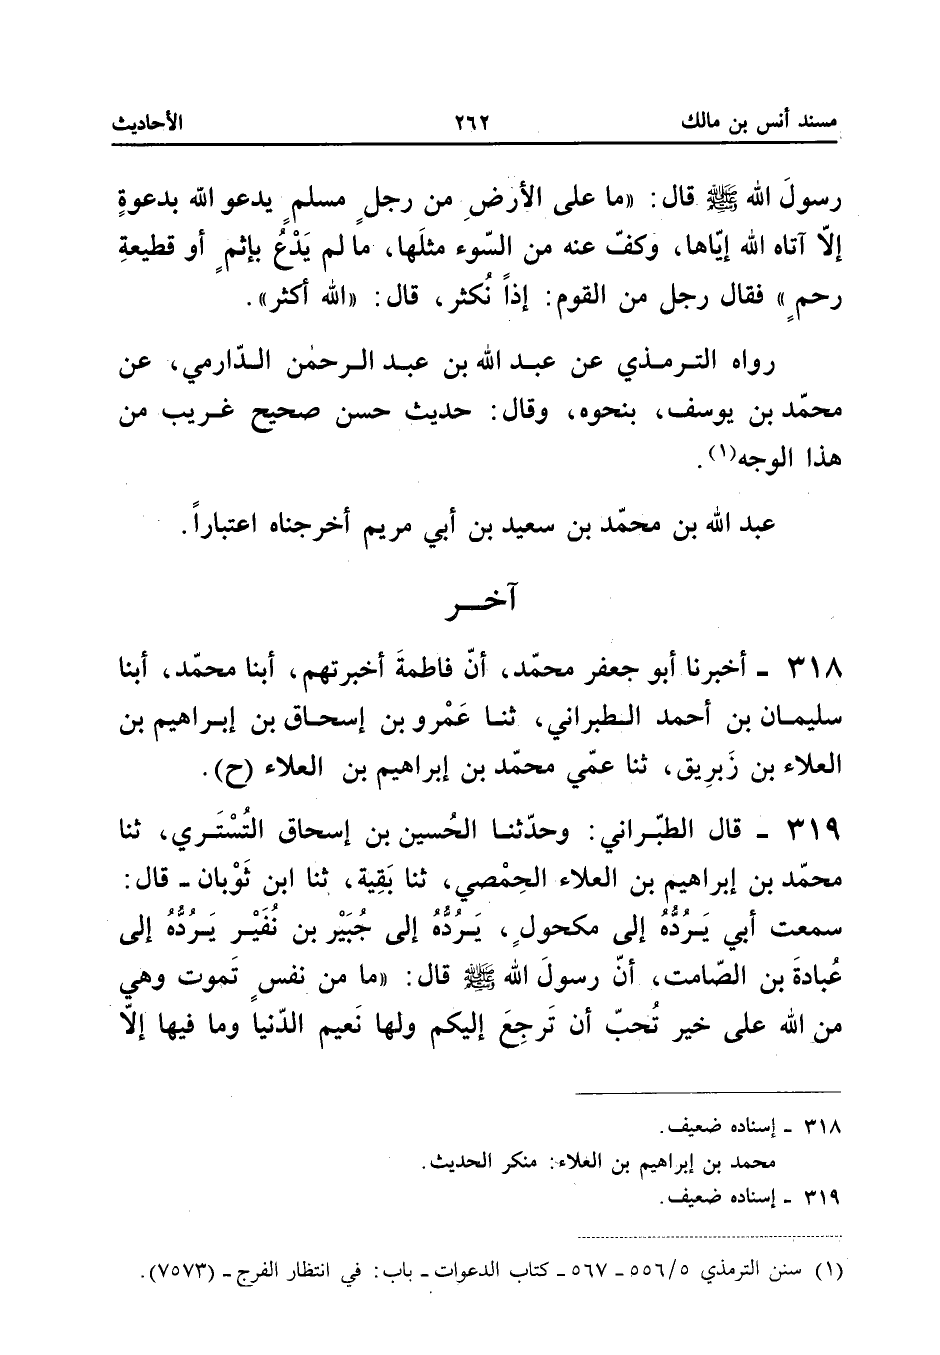 مسند أنس بن مالك ٢٦٢ الأحاديث
رسولَ الله ﷺ قال: «ما على الأرضِ من رجلٍ مسلمٍ يدعو الله بدعوةٍ
إلّا آتاه الله إيّاها، وكفّ عنه من السّوء مثلَها، ما لم يَدْعُ بإثمٍ أو قطيعةِ
رحمٍ» فقال رجل من القوم: إذاً نُكثر، قال: «الله أكثر».
رواه الترمذي عن عبد الله بن عبد الرحمٰن الدّارمي، عن
محمّد بن يوسف، بنحوه، وقال: حديث حسن صحيح غريب من
هذا الوجه(١).
عبد الله بن محمّد بن سعيد بن أبي مريم أخرجناه اعتباراً.
آخر
٣١٨ ـ أخبرنا أبو جعفر محمّد، أنّ فاطمةَ أخبرتهم، أبنا محمّد، أبنا
سليمان بن أحمد الطبراني، ثنا عَمْرو بن إسحاق بن إبراهيم بن
العلاء بن زَبريق، ثنا عمّي محمّد بن إبراهيم بن العلاء (ح).
٣١٩ ـ قال الطبّراني: وحدّثنا الحُسين بن إسحاق التُسْتَري، ثنا
محمّد بن إبراهيم بن العلاء الحِمْصي، ثنا بَقِية، ثنا ابن ثَوْبان ـ قال:
سمعت أبي يَرُدُّهُ إلى مكحولٍ، يَرُدُّهُ إلى جُبَيْر بن نُفَيْر يَرُدُّهُ إلى
عُبادةَ بن الصّامت، أنّ رسولَ الله ﷺ قال: «ما من نفسٍ تَموت وهي
من الله على خير تُحبّ أن تَرجِعَ إليكم ولها نَعيم الدّنيا وما فيها إلّا
٣١٨ ـ إسناده ضعيف.
محمد بن إبراهيم بن العلاء: منكر الحديث.
٣١٩ ـ إسناده ضعيف.
(١) سنن الترمذي ٥/٥٥٦ ـ ٥٦٧ ـ كتاب الدعوات ـ باب: في انتظار الفرج ـ (٧٥٧٣).